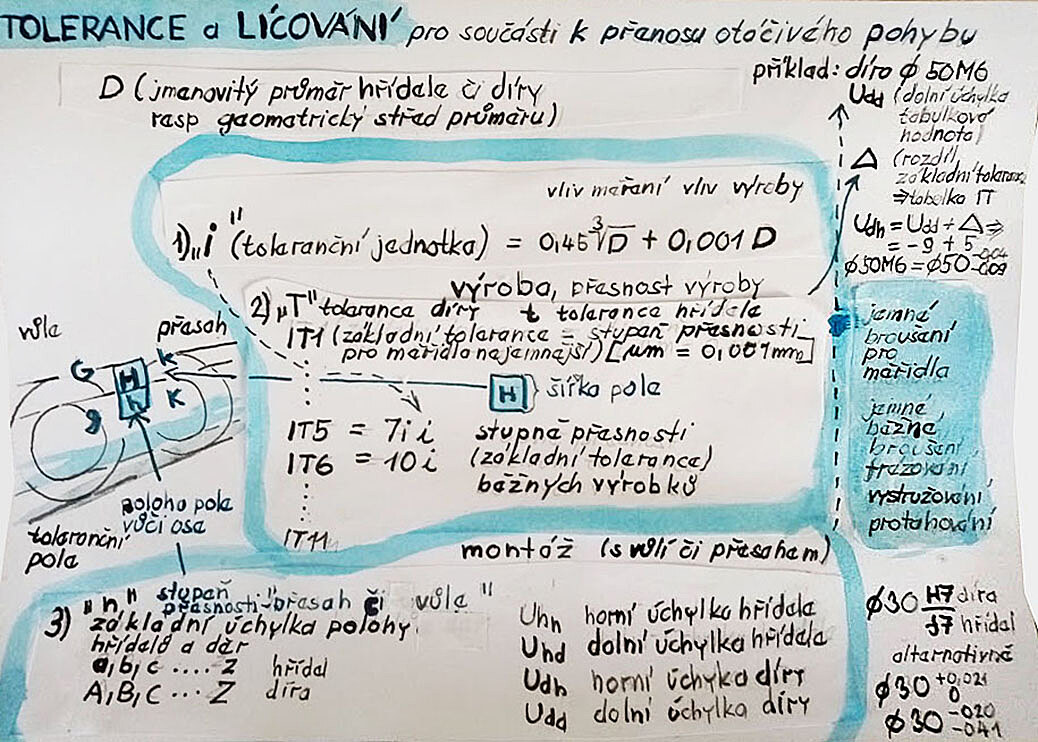 TOLERANCE a LÍCOVÁNÍ pro součásti k přenosu otočivého pohybu
příklad: díra ϕ 50M6
D (jmenovitý průměr hřídele či díry
resp geometrický střed průměru)
Udd (dolní úchylka
tabulková
hodnota)
Δ (rozdíl
základní tolerance
⇒ tabulka IT
Udh = Udd + Δ ⇒
= -9 + 5
ϕ50M6 = ϕ50 -0,04 -0,09
vliv měření vliv výroby
1) „i" (toleranční jednotka) = 0,45 ∛D + 0,001 D
výroba, přesnost výroby
2) „T" tolerance díry t tolerance hřídele
IT1 (základní tolerance = stupeň přesnosti
pro měřidla nejemnější) [μm = 0,001mm]
H } šířka pole
IT5 = 7i i stupně přesnosti
IT6 = 10 i (základní tolerance)
běžných výrobků
IT11
vůle
přesah
G
H
h
k
K
g
poloha pole
vůči ose
toleranční
pole
stupeň
přesnosti
jemné
broušení
pro
měřidla
jemné,
běžné
broušení
frézování
vystružování
protahování
montáž (s vůlí či přesahem)
3) „h" přesah či vůle"
základní úchylka polohy
hřídelů a děr
a,b,c .... z hřídel
A,B,C ... Z díra
Uhn horní úchylka hřídele
Uhd dolní úchylka hřídele
Udh horní úchylka díry
Udd dolní úchylka díry
ϕ30 H7 díra
f7 hřídel
alternativně
ϕ30 +0,021 0
ϕ30 -020 -041